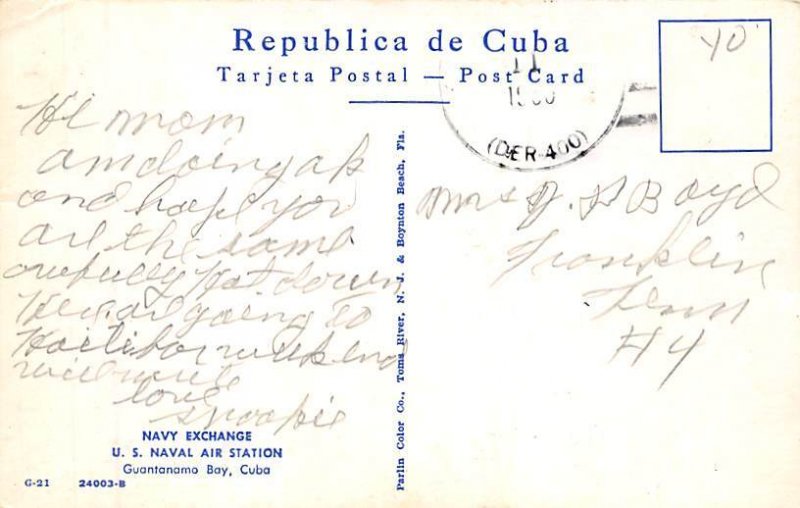 Republica de Cuba
Tarjeta Postal — Post Card
11
(DER 400)
YO
Hi mom
am doing ok
and hope you
are the same
awfully Hot down
Here are going to
Haiti for week end
will write
love
snookie
Mrs J. D Boyd
Franklin
Tenn
#4
NAVY EXCHANGE
U. S. NAVAL AIR STATION
Guantanamo Bay, Cuba
G-21 24003-B
Parlin Color Co., Toms River, N. J. & Boynton Beach, Fla.